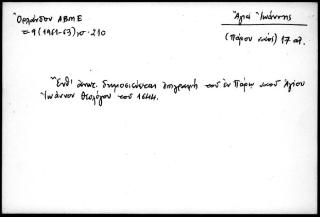 Ὀρλάνδου ΑΒΜΕ
Θ (1961-63) σ. 210
Ἅγιος Ἰωάννης
(Πάρου νῆσος) 17 αἰ.
Ἔνθ' ἀνωτ. δημοσιεύεται ἐπιγραφή τοῦ ἐν Πάρῳ ναοῦ Ἁγίου
Ἰωάννου Θεολόγου τοῦ 1644.